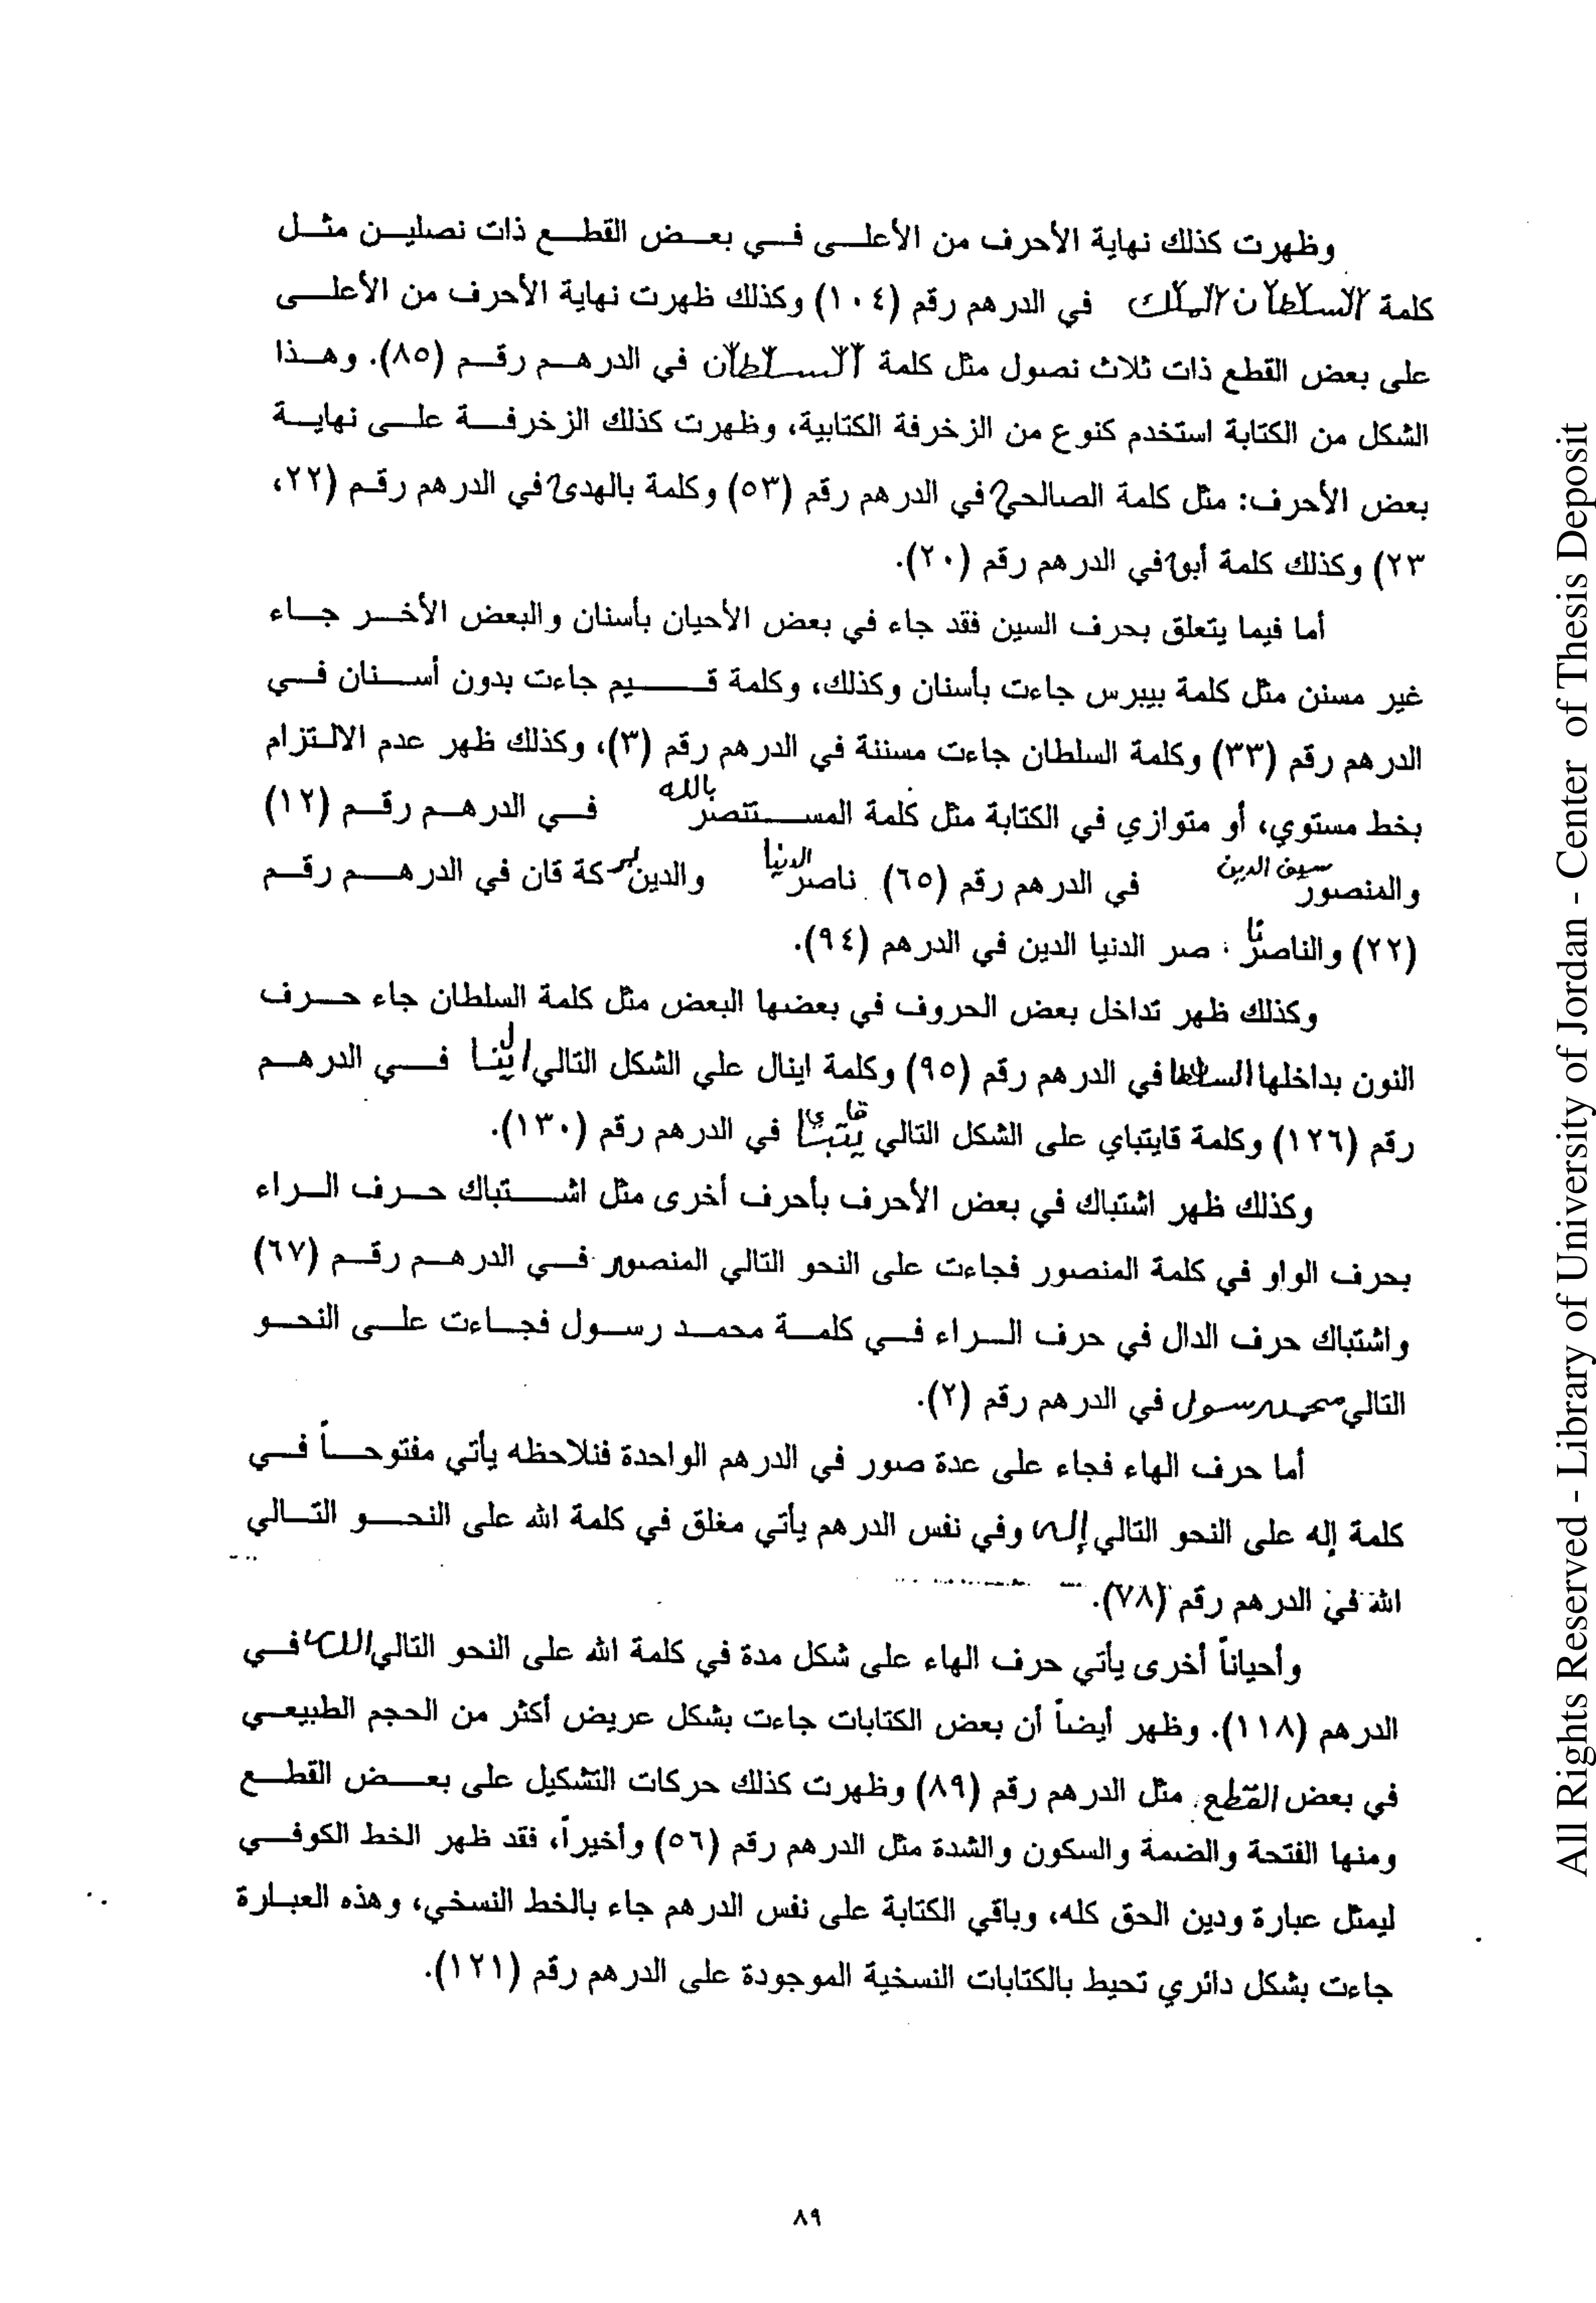 وظهرت كذلك نهاية الأحرف من الأعلى في بعض القطع ذات نصلين مثل
كلمة السلطان الملك في الدرهم رقم (١٠٤) وكذلك ظهرت نهاية الأحرف من الأعلى
على بعض القطع ذات ثلاث نصول مثل كلمة السلطان في الدرهم رقم (٨٥). وهذا
الشكل من الكتابة استخدم كنوع من الزخرفة الكتابية، وظهرت كذلك الزخرفة على نهاية
بعض الأحرف: مثل كلمة الصالحي في الدرهم رقم (٥٣) وكلمة بالهدى في الدرهم رقم (٢٢،
٢٣) وكذلك كلمة أبو في الدرهم رقم (٢٠).
أما فيما يتعلق بحرف السين فقد جاء في بعض الأحيان بأسنان والبعض الأخر جاء
غير مسنن مثل كلمة بيبرس جاءت بأسنان وكذلك، وكلمة قسيم جاءت بدون أسنان في
الدرهم رقم (٣٣) وكلمة السلطان جاءت مسننة في الدرهم رقم (٣)، وكذلك ظهر عدم الالتزام
بخط مستوي، أو متوازي في الكتابة مثل كلمة المستنصر بالله في الدرهم رقم (١٢)
والمنصور سيف الدين في الدرهم رقم (٦٥) ناصر الدنيا والدين بركة قان في الدرهم رقم
(٢٢) والناصر نا صر الدنيا الدين في الدرهم (٩٤).
وكذلك ظهر تداخل بعض الحروف في بعضها البعض مثل كلمة السلطان جاء حرف
النون بداخلها السلطان في الدرهم رقم (٩٥) وكلمة اينال علي الشكل التالي اينال في الدرهم
رقم (١٢٦) وكلمة قايتباي على الشكل التالي قايتباي في الدرهم رقم (١٣٠).
وكذلك ظهر اشتباك في بعض الأحرف بأحرف أخرى مثل اشتباك حرف الراء
بحرف الواو في كلمة المنصور فجاءت على النحو التالي المنصور في الدرهم رقم (٦٧)
واشتباك حرف الدال في حرف الراء في كلمة محمد رسول فجاءت على النحو
التالي محمد رسول في الدرهم رقم (٢).
أما حرف الهاء فجاء على عدة صور في الدرهم الواحدة فنلاحظه يأتي مفتوحاً في
كلمة إله على النحو التالي إله وفي نفس الدرهم يأتي مغلق في كلمة الله على النحو التالي
الله في الدرهم رقم (٧٨).
وأحياناً أخرى يأتي حرف الهاء على شكل مدة في كلمة الله على النحو التالي الله في
الدرهم (١١٨). وظهر أيضاً أن بعض الكتابات جاءت بشكل عريض أكثر من الحجم الطبيعي
في بعض القطع. مثل الدرهم رقم (٨٩) وظهرت كذلك حركات التشكيل على بعض القطع
ومنها الفتحة والضمة والسكون والشدة مثل الدرهم رقم (٥٦) وأخيراً، فقد ظهر الخط الكوفي
ليمثل عبارة ودين الحق كله، وباقي الكتابة على نفس الدرهم جاء بالخط النسخي، وهذه العبارة
جاءت بشكل دائري تحيط بالكتابات النسخية الموجودة على الدرهم رقم (١٢١).
٨٩
All Rights Reserved - Library of University of Jordan - Center of Thesis Deposit